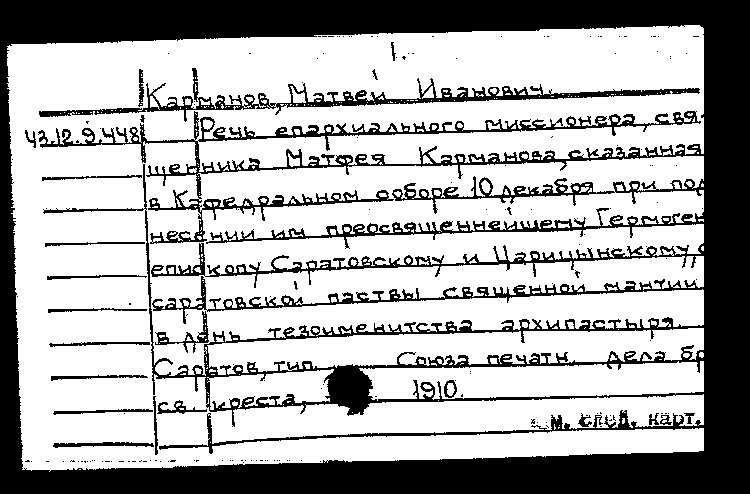 1.
Карманов, Матвей Иванович.
43.12.9.448 Речь епархиального миссионера, свя-
щенника Матфея Карманова, сказанная
в Кафедральном соборе 10 декабря при под
несении им преосвященнейшему Гермоген
епископу Саратовскому и Царицынскому,
саратовской паствы священной мантии
в день тезоименитства архипастыря.
Саратов, тип. Союза печатн. дела бр
св. креста, 1910.
см. след. карт.